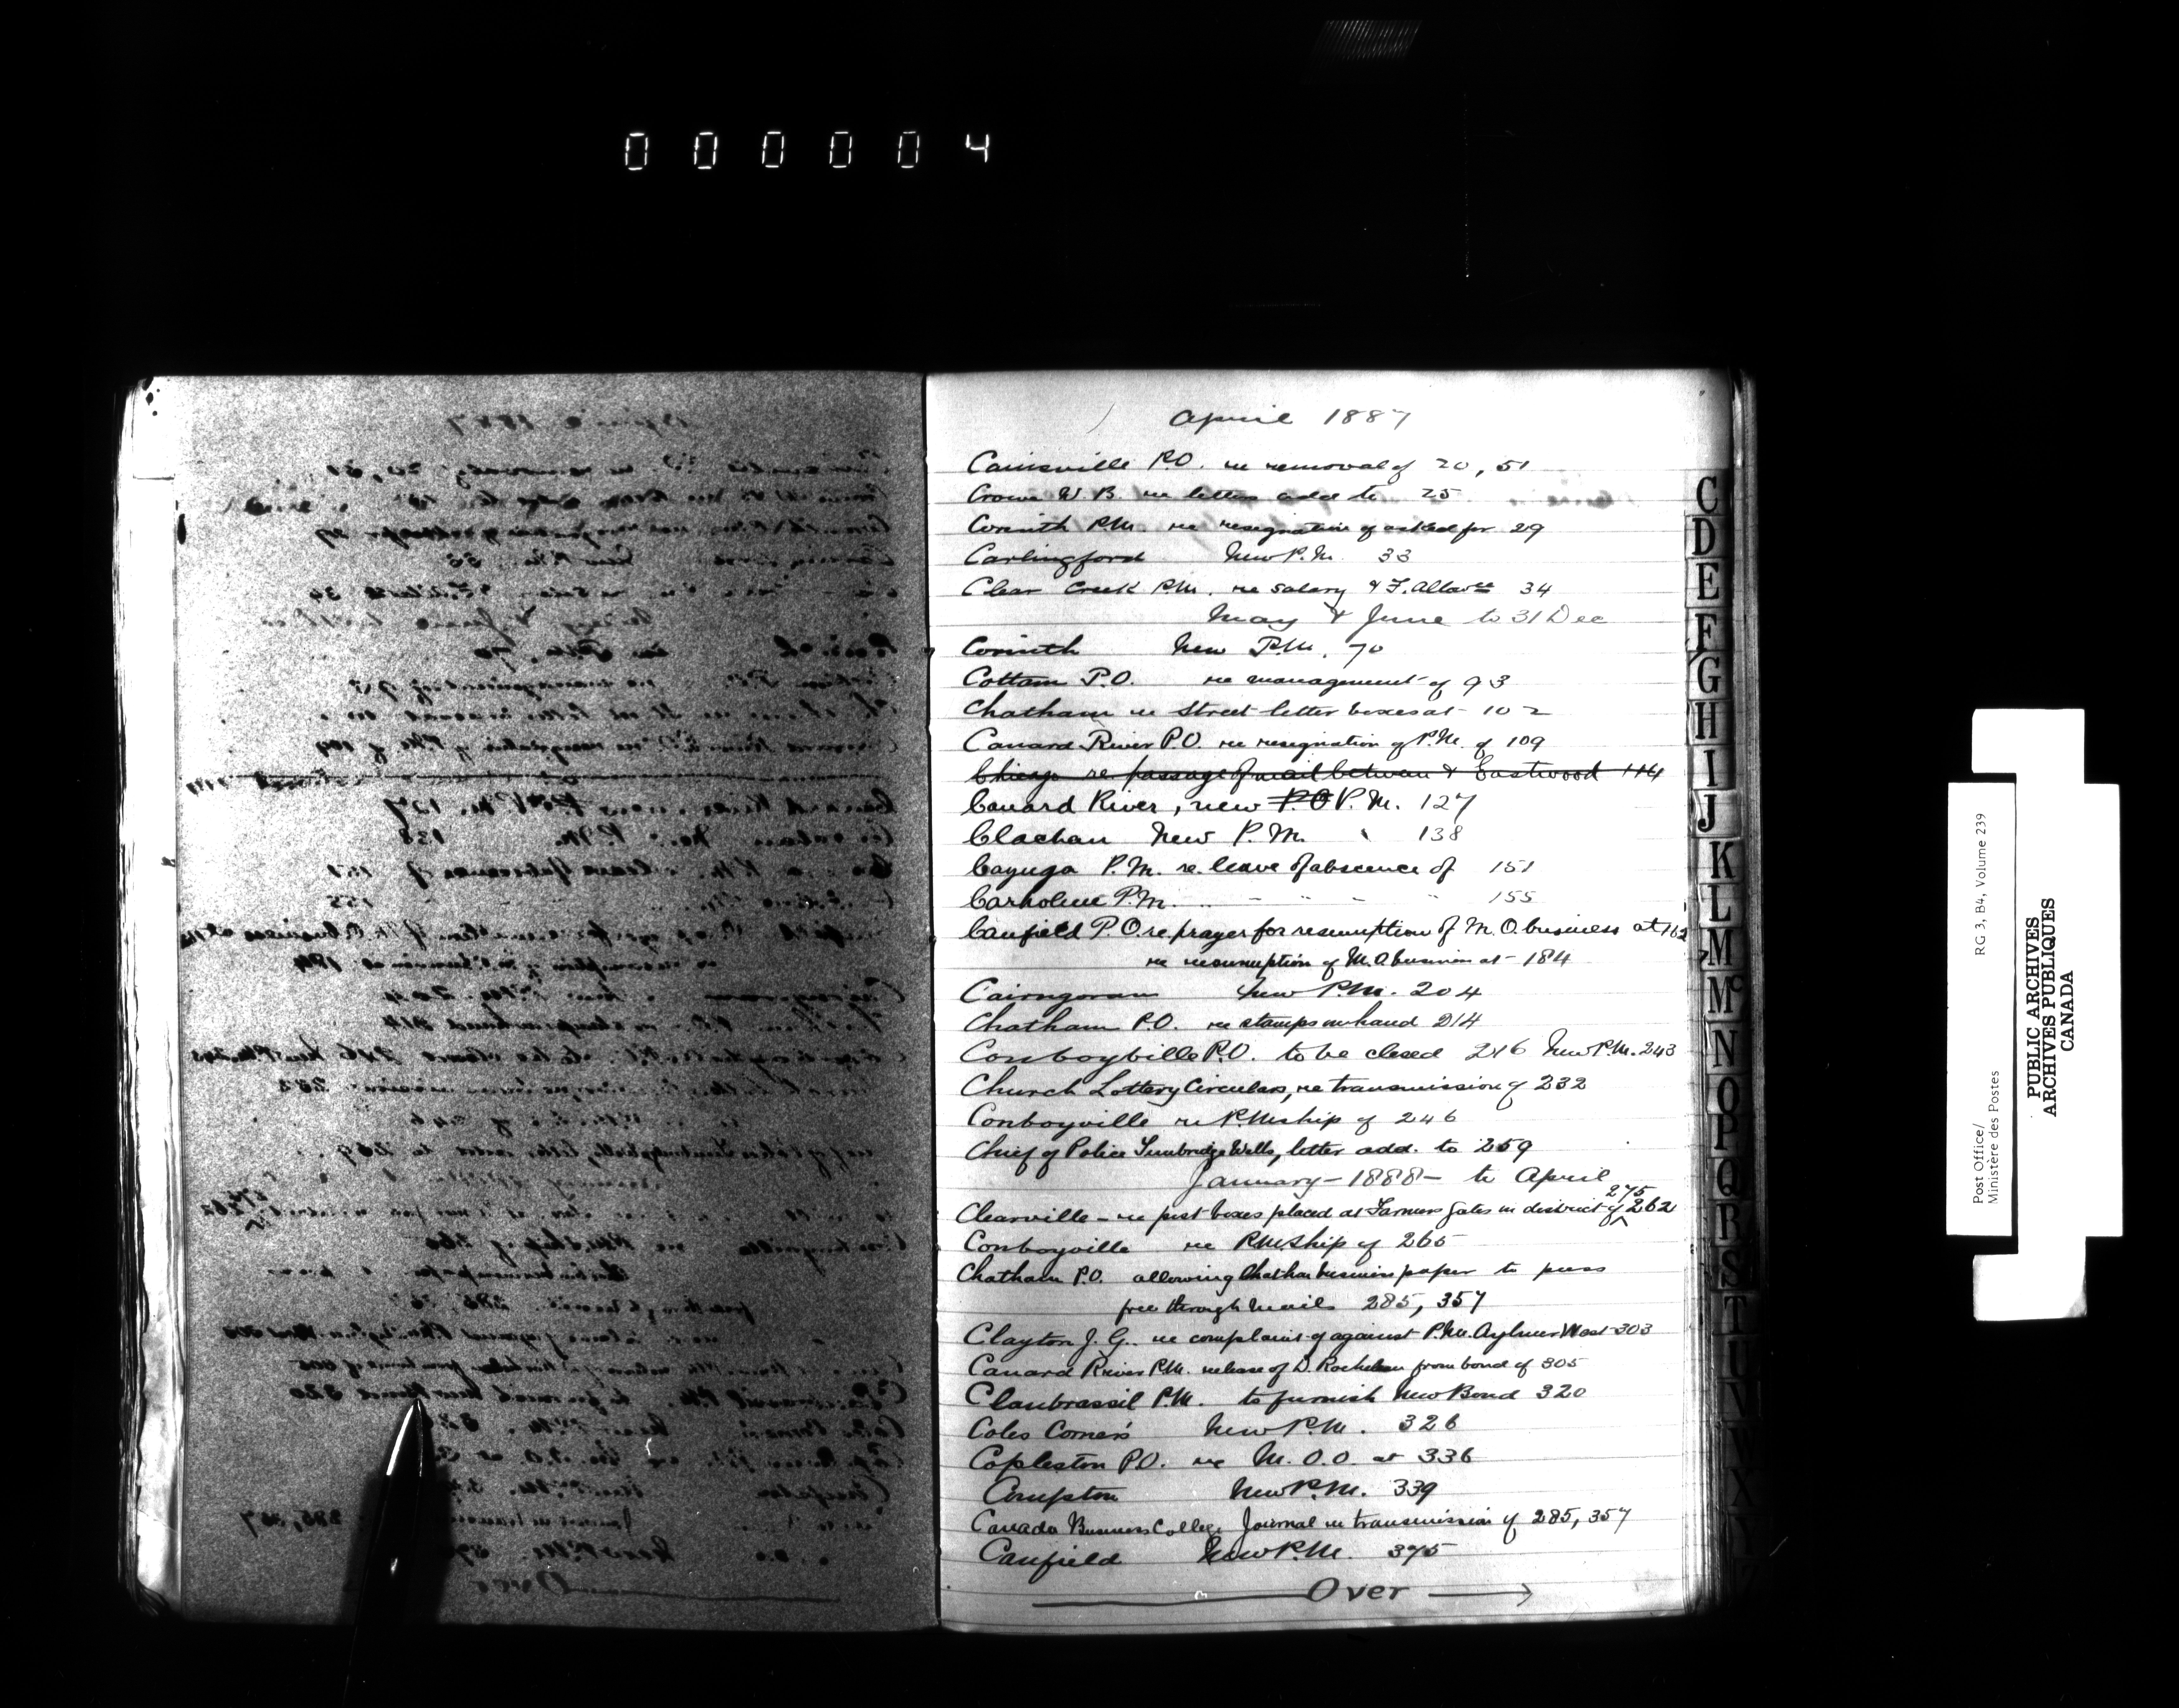 000004
April 1887
Cainsville P.O. re removal of 20, 51
Crowe W. B. re letters add to 25
Corinth P.M. re resignation of asked for 29
Carlingford New P.M. 33
Clear Creek P.M. re salary & F. Allowce 34
May & June to 31 Dec
Corinth New P.M. 70
Cottam P.O. re management of 93
Chatham re Street letter boxes at 102
Canard River P.O. re resignation of P.M. of 109
Chicago re passage of mail between & Eastwood 114
Canard River, new P.O P.M. 127
Clachan New P.M. 138
Cayuga P.M. re leave of abscence of 151
Carholme P.M. " " " " 155
Canfield P.O. re prayer for resumption of M.O. business at 162
re resumption of M.O business at 184
Cairngorm New P.M. 204
Chatham P.O. re stamps on hand 214
Conboyville P.O. to be closed 216 New P.M. 243
Church Lottery Circulars, re transmission of 232
Conboyville re P.Mship of 246
Chief of Police Tunbridge Wells, letter add. to 259
January - 1888 - to April
275
Clearville - re post boxes placed at Farmers gates in district of 262
Conboyville re P.M.Ship of 265
Chatham P.O. allowing Chathan business paper to pass
free through mails 285, 357
Clayton J. G. re complaint of against P.M. Aylmer West 303
Canard River P.M. release of D. from bond of 305
Clanbrassil P.M. to furnish New Bond 320
Coles Corners New P.M. 326
Copleston P.O. re M. O. O. at 336
Compton New P.M. 339
Canada Business College Journal re transmission of 285, 357
Canfield New P.M. 375
Over
C
D
E
F
G
H
I
J
K
L
M
Mc
N
O
P
Q
R
S
T
U
V
W
X
Y
Post Office/
Ministère des Postes
RG 3, B4, Volume 239
PUBLIC ARCHIVES
ARCHIVES PUBLIQUES
CANADA